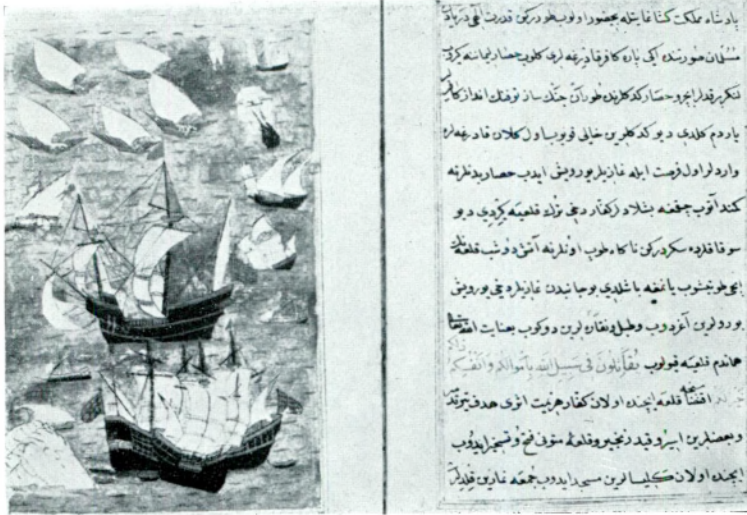 پادشاه مملکت کشا غایتله بحضور اولوب طوررکن قدرت الهی
مسلمان صورتنده ایکی پاره کافر قادرغه لری کلوب حصار لیماننه
لنکر ایچرو حصار کدکلرنده طوران جنك ساز توفنك انداز
یاردم کلدی دیو کدکلرین خالی قویوب اول کلان قادرغه لره
واردلر اول فرصت ایله غازیلر یورویش ایدب حصار بدنلرنه
کمند آتوب چقمغه بشلادلر کفار دخی ترك قلعیه کیردی دیو
سوقاقلرده سکردرکن ناکاه طوب اوتلرنه آتش دوشب قلعه‌نك
ایچی طوتیشوب یانمغه باشلدی بو جانبدن غازیلر دخی یورویش
بورولرین و طبل و نقاره لرین دوکوب بعنایت الله تعالی
هماندم قلعیه قیولوب تقاتلون فی سبیل الله باموالکم وانفسکم
قلعه ایچنده اولان کفار هزیمت اثری هدف
و بعضلرین اسیر و قید زنجیر و قلعه متونی فتح و تسخیر ایدوب
ایچنده اولان کلیسالرین مسجد ایدوب جمعه نمازین قلدلر